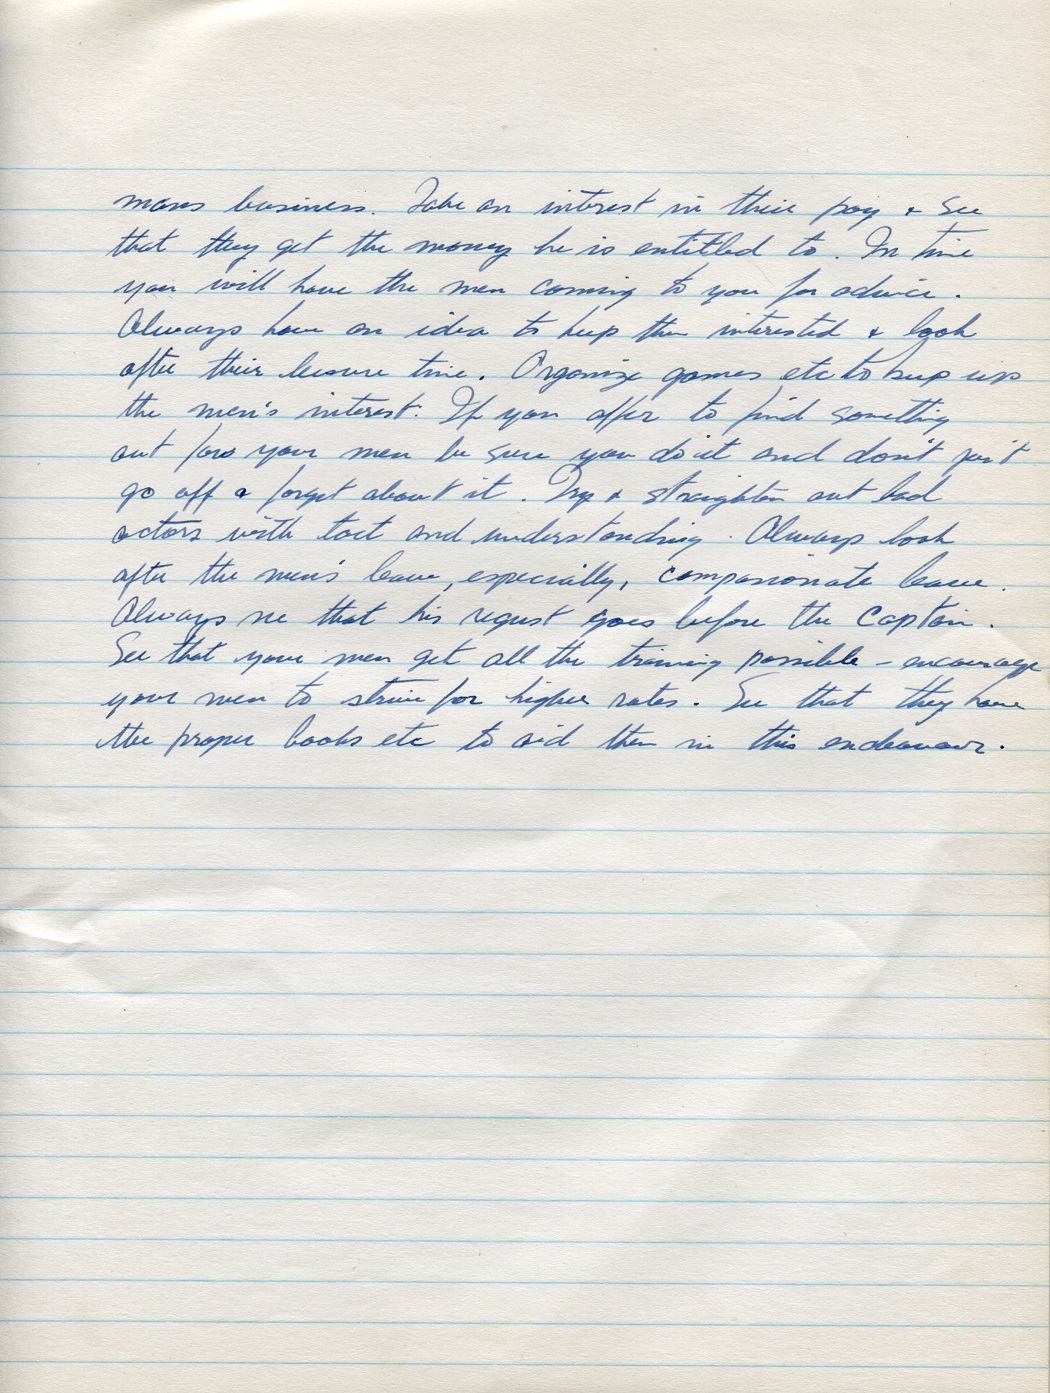 mans business. Take an interest in their pay & See
that they get the money he is entitled to. In time
you will have the men coming to you for advice.
Always have an idea to keep them interested & look
after their leisure time. Organize games etc to keep up
the men's interest. If you offer to find something
out for your men be sure you do it and don't just
go off & forget about it. Try & straighten out bad
actors with tact and understanding. Always look
after the men's leave, especially, compassionate leave.
Always see that his request goes before the Captain.
See that your men get all the training possible - encourage
your men to strive for higher rates. See that they have
the proper books etc to aid them in this endeavour.